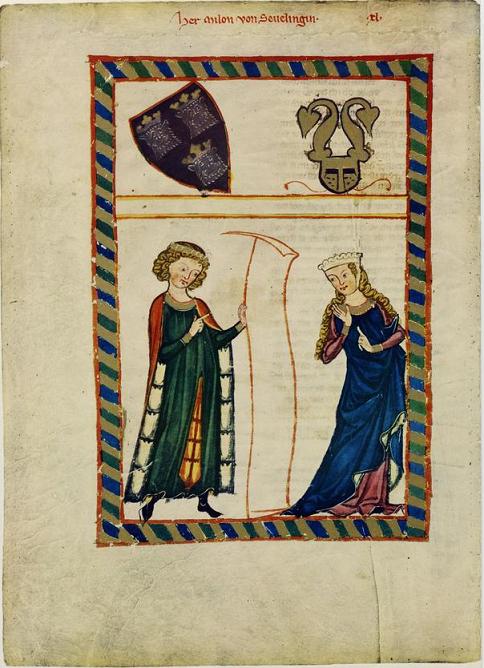 Her milon von Seuelingin· ·xl·